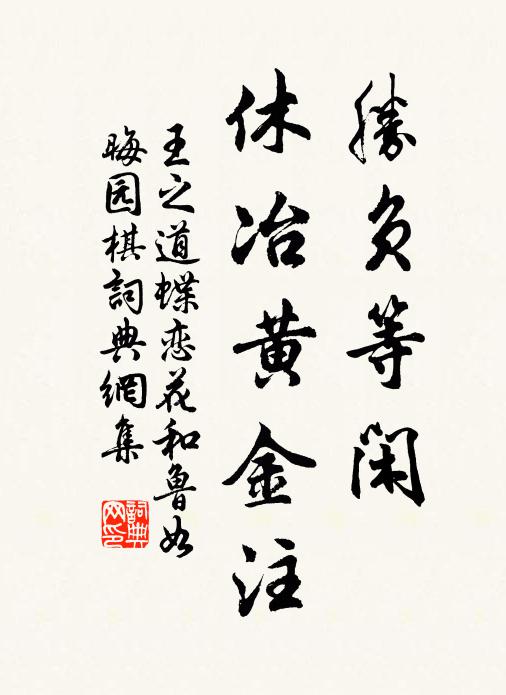 勝负等閑
休冶黄金注
王之道蝶恋花和鲁如
晦园棋詞典網集
詞典网印